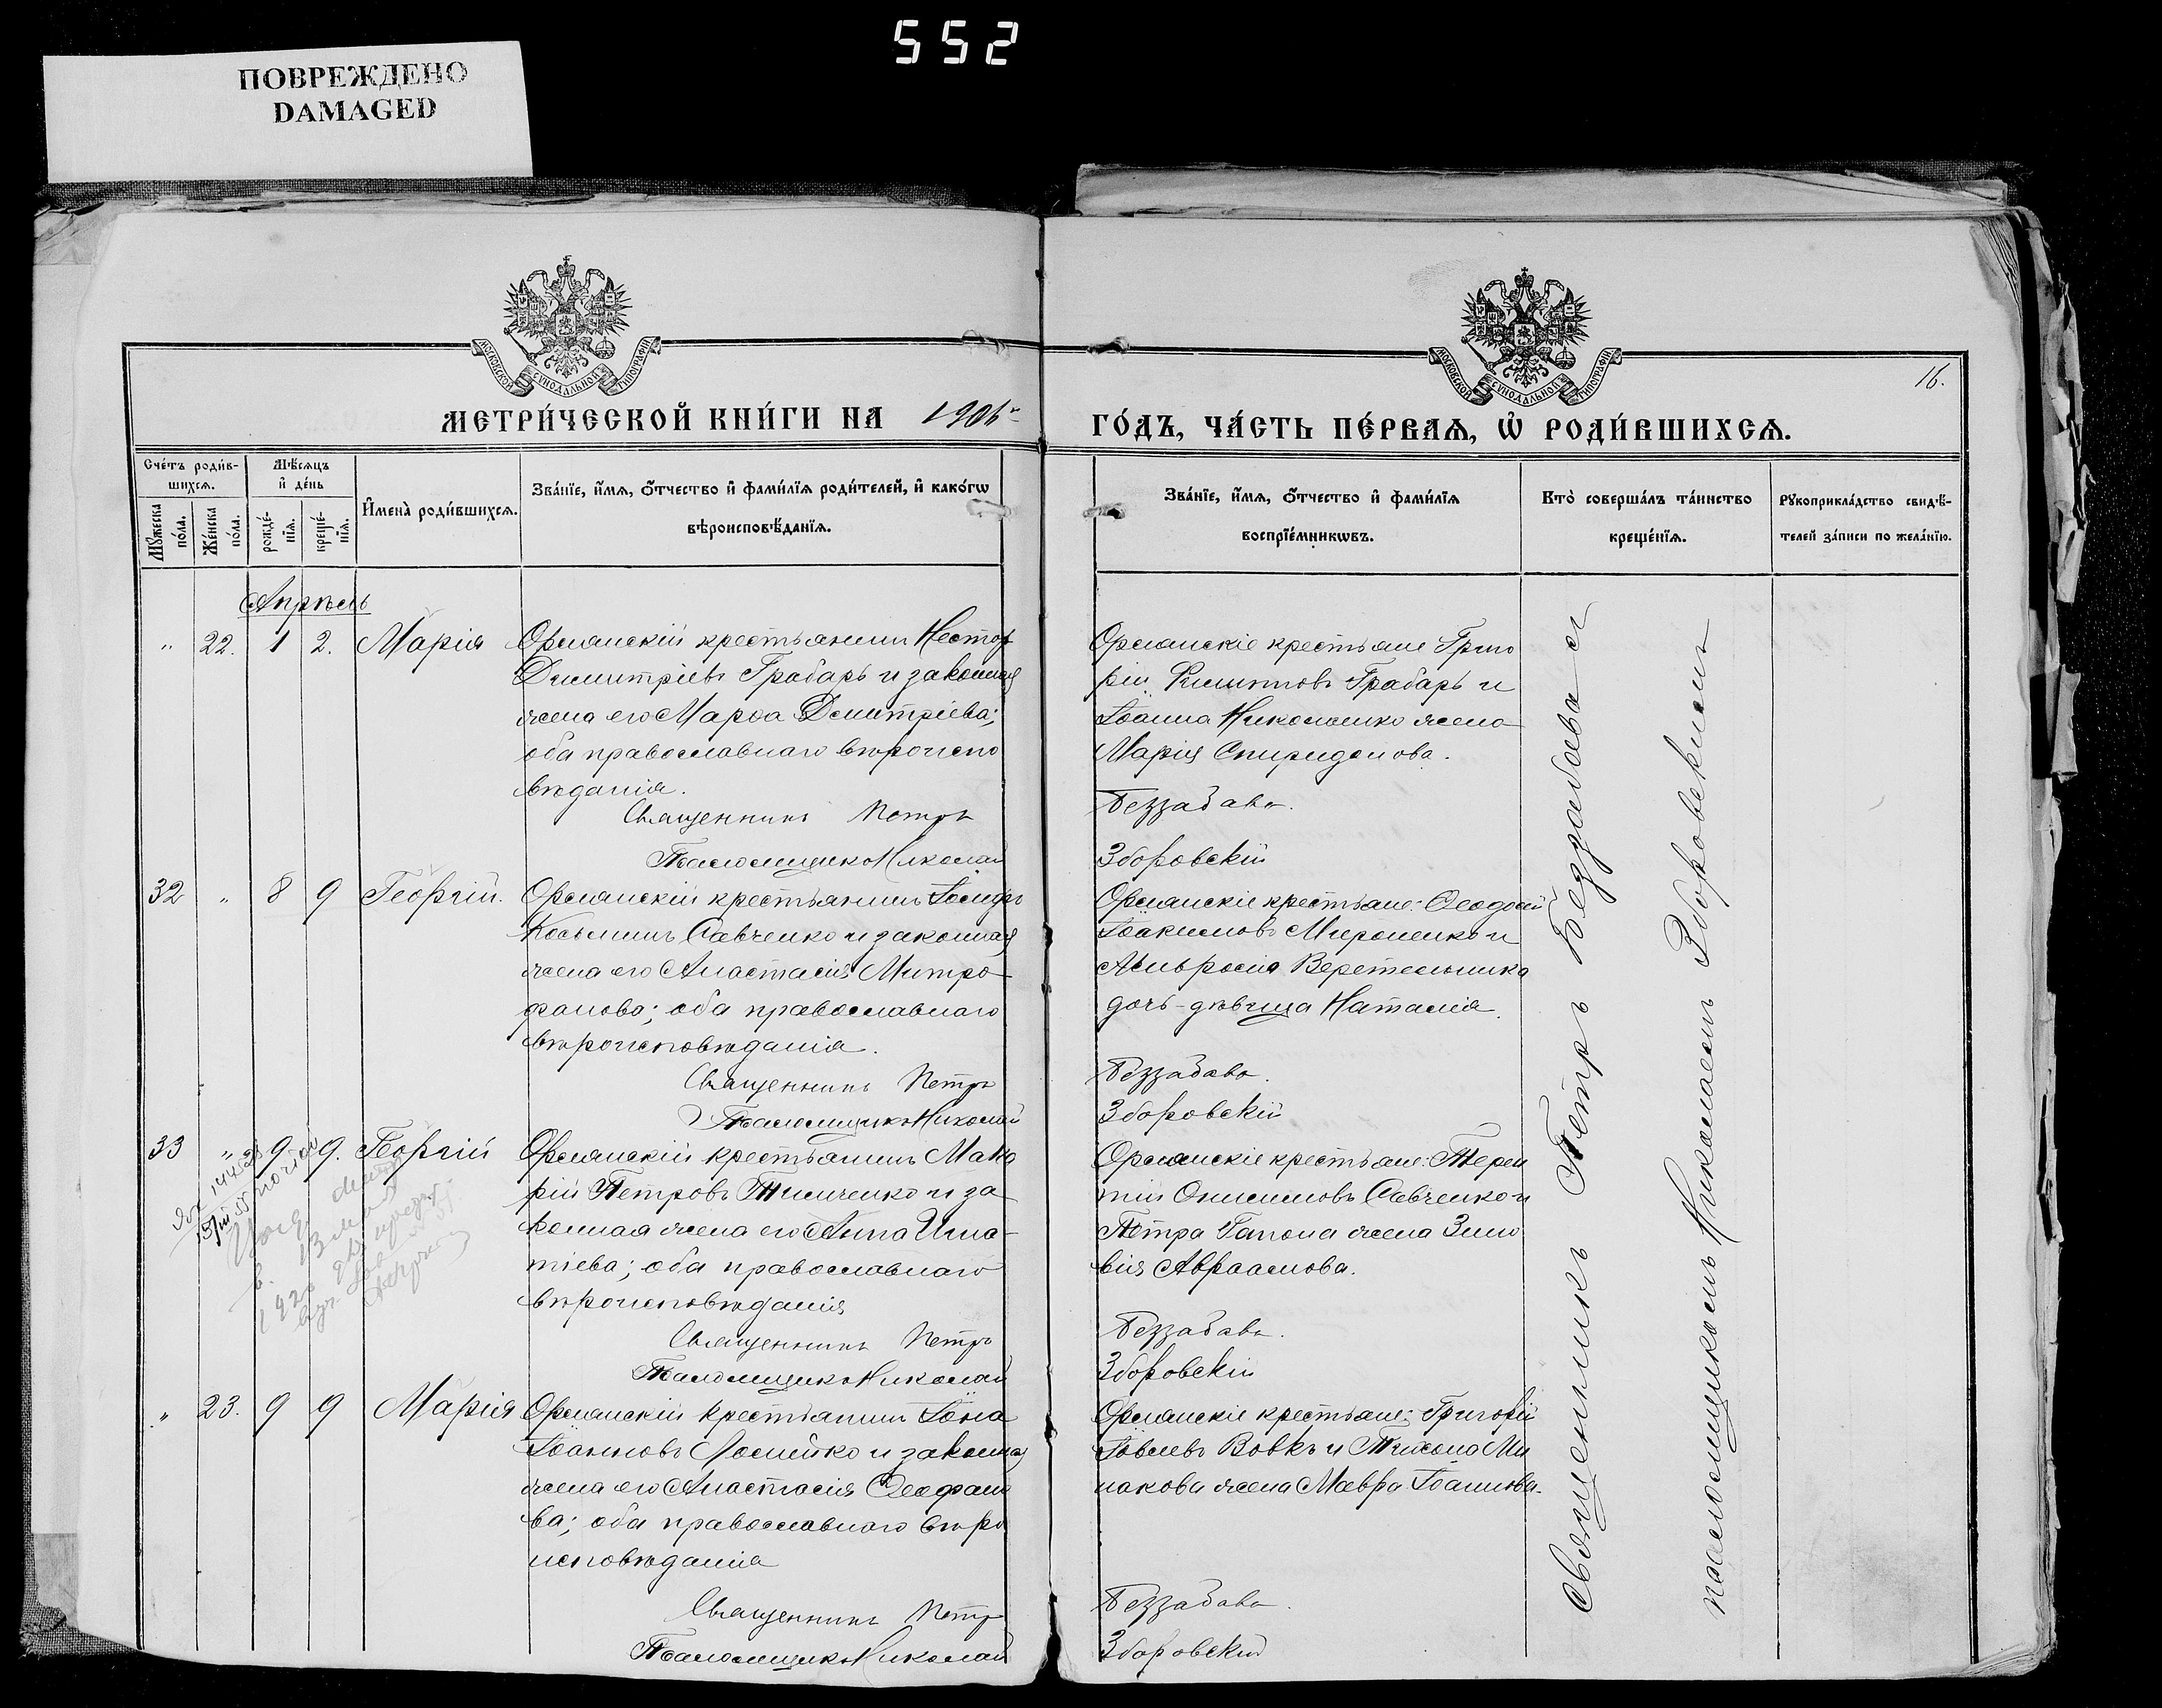 552
ПОВРЕЖДЕНО
DAMAGED
МОСКОВСКОЙ СѴНОДАЛЬНОЙ ТИПОГРАФІИ
МОСКОВСКОЙ СѴНОДАЛЬНОЙ ТИПОГРАФІИ
16.
МЕТРИ́ЧЕСКОЙ КНИ́ГИ НА 1906 ГО́ДЪ, ЧА́СТЬ ПЕ́РВАѦ, Ѡ҆ РОДИ́ВШИХСѦ.
Сче́тъ роди́в-
шихсѧ.
Мꙋжеска по́ла.
Же́нска по́ла.
Мѣ́сѧцъ
и҆ де́нь
рожде́-
нїѧ.
креще́-
нїѧ.
И҆мена̀ роди́вшихсѧ.
Зва́нїе, и҆́мѧ, ѻ҆́тчество и҆ фами́лїѧ роди́телей, и҆ како́гѡ
вѣроисповѣ́данїѧ.
Зва́нїе, и҆́мѧ, ѻ҆́тчество и҆ фами́лїѧ
воспрїе́мникѡвъ.
Кто̀ соверша́лъ та́инство
креще́нїѧ.
Рꙋкоприкла́дство свидѣ́-
телей за́писи по жела́нїю.
Апрѣль
" 22. 1 2. Марія
Орлианскій крестьянинъ Нестор
Димитріевъ Грабарь и законная
жена его Марѳа Дмитріева;
оба православнаго вѣроиспо
вѣданія.
Священникъ Петръ
Псаломщикъ Николай
Орлианскіе крестьяне Григо
рій Филипповъ Грабарь и
Іоанна Николенко жена
Марія Спиридонова.
Беззабава.
Зборовскій
32 " 8 9 Георгій.
Орлианскій крестьянинъ Іосифъ
Косьминъ Савченко и законная
жена его Анастасія Митро
фанова; оба православнаго
вѣроисповѣданія.
Священникъ Петръ
Псаломщикъ Николай
Орлианскіе крестьяне: Ѳеодосій
Іоакимовъ Мироненко и
Амвросія Веретельника
дочь-дѣвица Наталія.
Беззабава.
Зборовскій
33 " 9 9. Георгій
Орлианскій крестьянинъ Мака
рій Петровъ Тимченко и за
конная жена его Анна Игна
тіева; оба православнаго
вѣроисповѣданія
Священникъ Петръ
Псаломщикъ Николай
Орлианскіе крестьяне: Терен
тій Онисимовъ Савченко и
Петра Гапона жена Зино
вія Авраамова.
Беззабава.
Зборовскій
" 23. 9 9 Марія
Орлианскій крестьянинъ Іона
Іоанновъ Ломейко и законная
жена его Анастасія Ѳеофано
ва; оба православнаго вѣро
исповѣданія
Священникъ Петръ
Псаломщикъ Николай
Орлианскіе крестьяне: Григорій
Іовлевъ Вовкъ и Тихона Ми
накова жена Мавра Іоаннова.
Беззабава.
Зборовскій
Священникъ Петръ Беззабава съ
псаломщикомъ Николаемъ Зборовскимъ